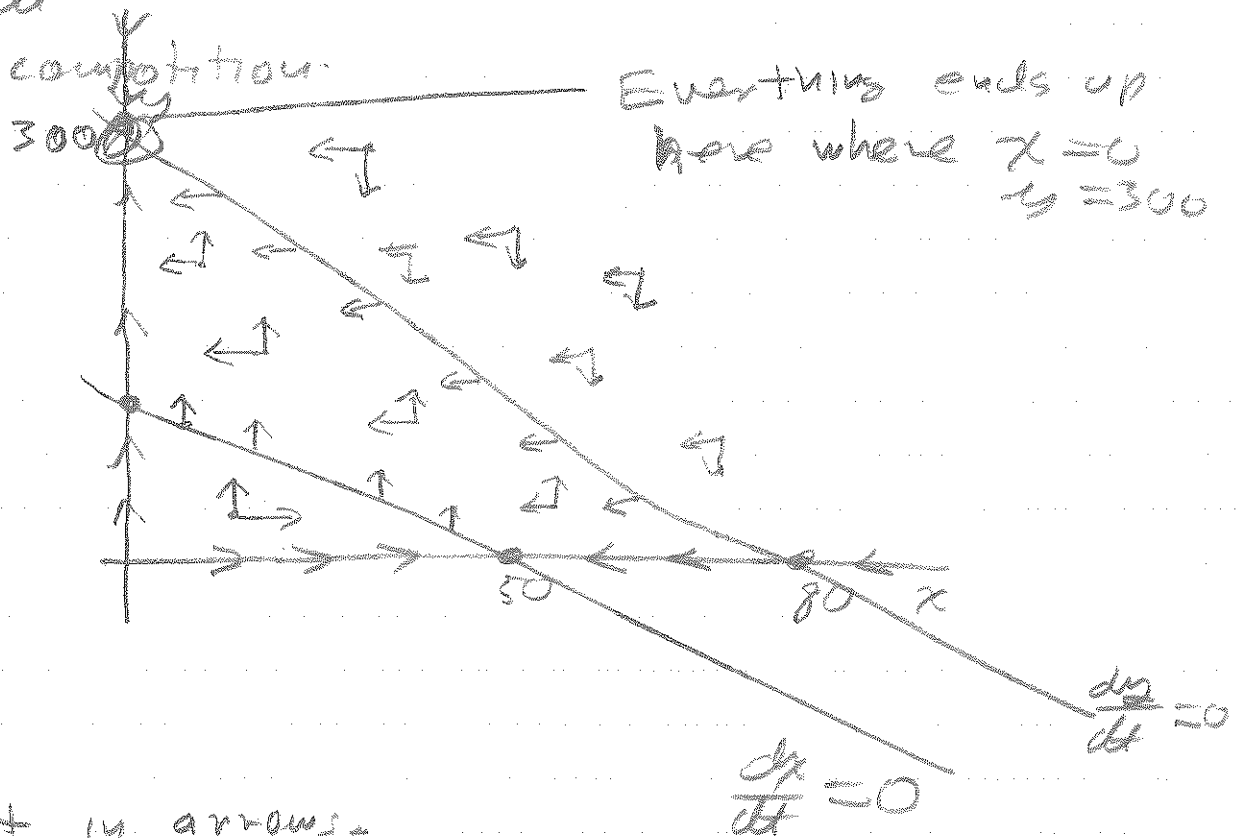 competition.
y
300
Everything ends up
here where x = 0
y = 300
50
80
x
dy/dt = 0
dx/dt = 0
t in arrows.